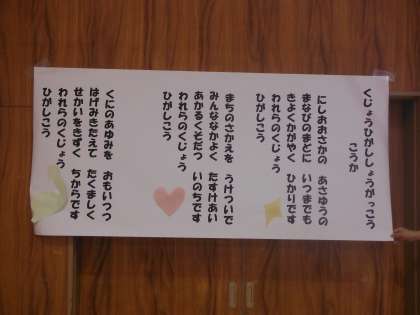 くじょうひがししょうがっこう
こうか
にしおおさかの あさゆうの
まなびのまどに いつまでも
きよくかがやく ひかりです
われらのくじょう
ひがしこう
まちのさかえを うけついで
みんななかよく たすけあい
あかるくそだつ いのちです
われらのくじょう
ひがしこう
くにのあゆみを おもいつつ
はげみきたえて たくましく
せかいをきずく ちからです
われらのくじょう
ひがしこう